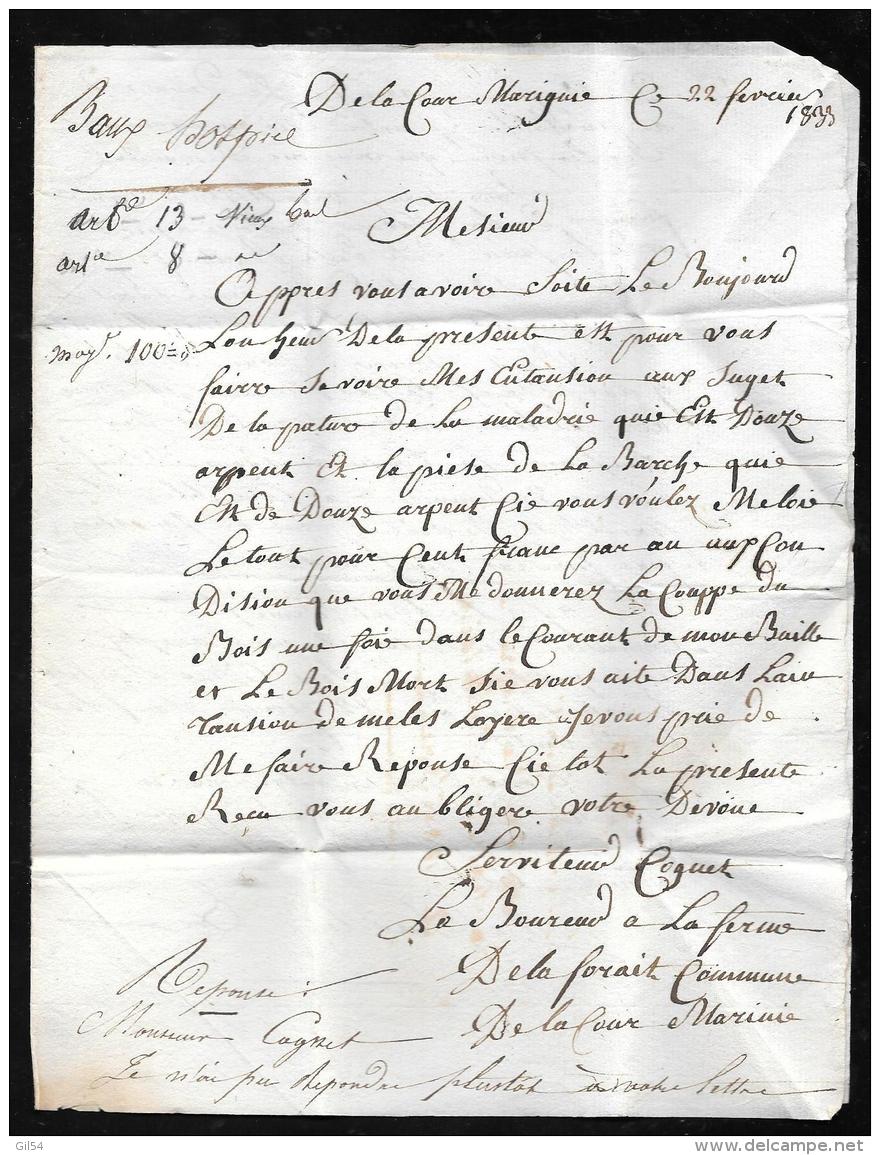 De la Cour Marignie Ce 22 fevrier
1833
Baux hospice
art 13 Vieux bail
art 8
Mesieur
Appres vous avoire Soite Le Boujourd
moy. 100
Lonheur De la presente est pour vous
fairre Savoire Mes Entansion aux Suget
De la pature de La maladrie quie Est Douze
arpent Et la piese de La Barche quie
Est de Douze arpent Cie vous voulez Meloie
Le tout pour Cent franc par an aux Con
Dision que vous Me donnerez La Couppe du
Bois une foie dans le Courant de mon Baille
et Le Bois Mort Sie vous aite Dans Lain
Tansion de meles Loyere Je vous prie de
Me faire Reponse Cie tot La presente
Recu vous aubligere votre Devoue
Serviteur Coguet
La Boureur a La ferme
De la forait Commune
De la Cour Marinie
Reponse :
Monsieur Cognet
Je n'ai pu Repondre plustot à votre lettre
Gil54
delcampe.net